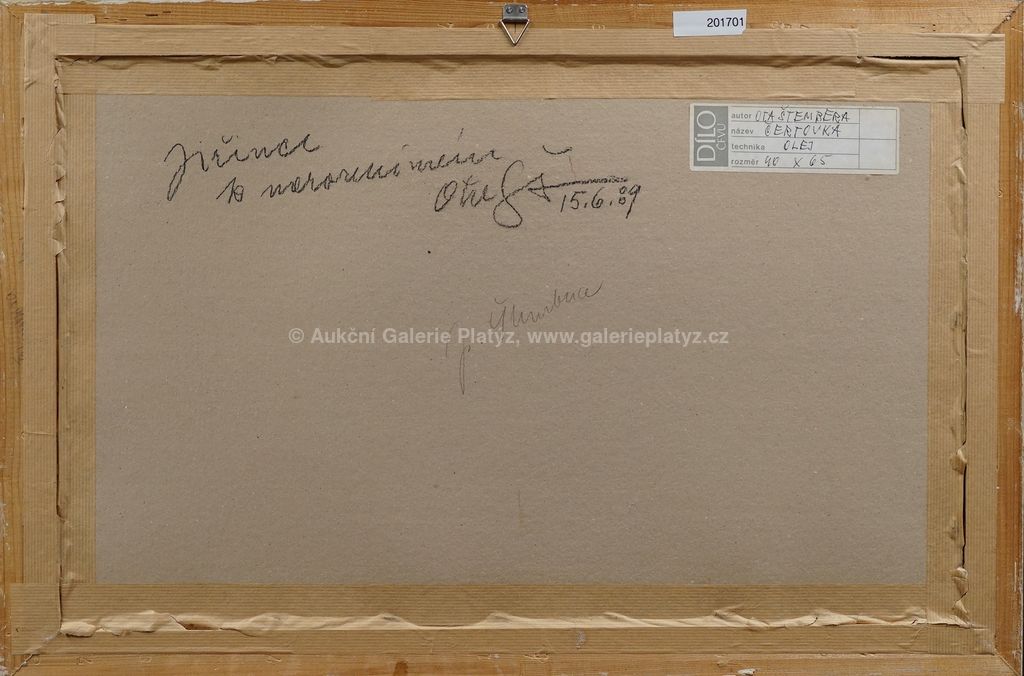 201701
DÍLO
ČFVU
autor OTA ŠTEMBERA
název ČERTOVKA
technika OLEJ
rozměr 40 x 65
Jiřince
k narozeninám
Ota Š
15.6.89
© Aukční Galerie Platýz, www.galerieplatyz.cz